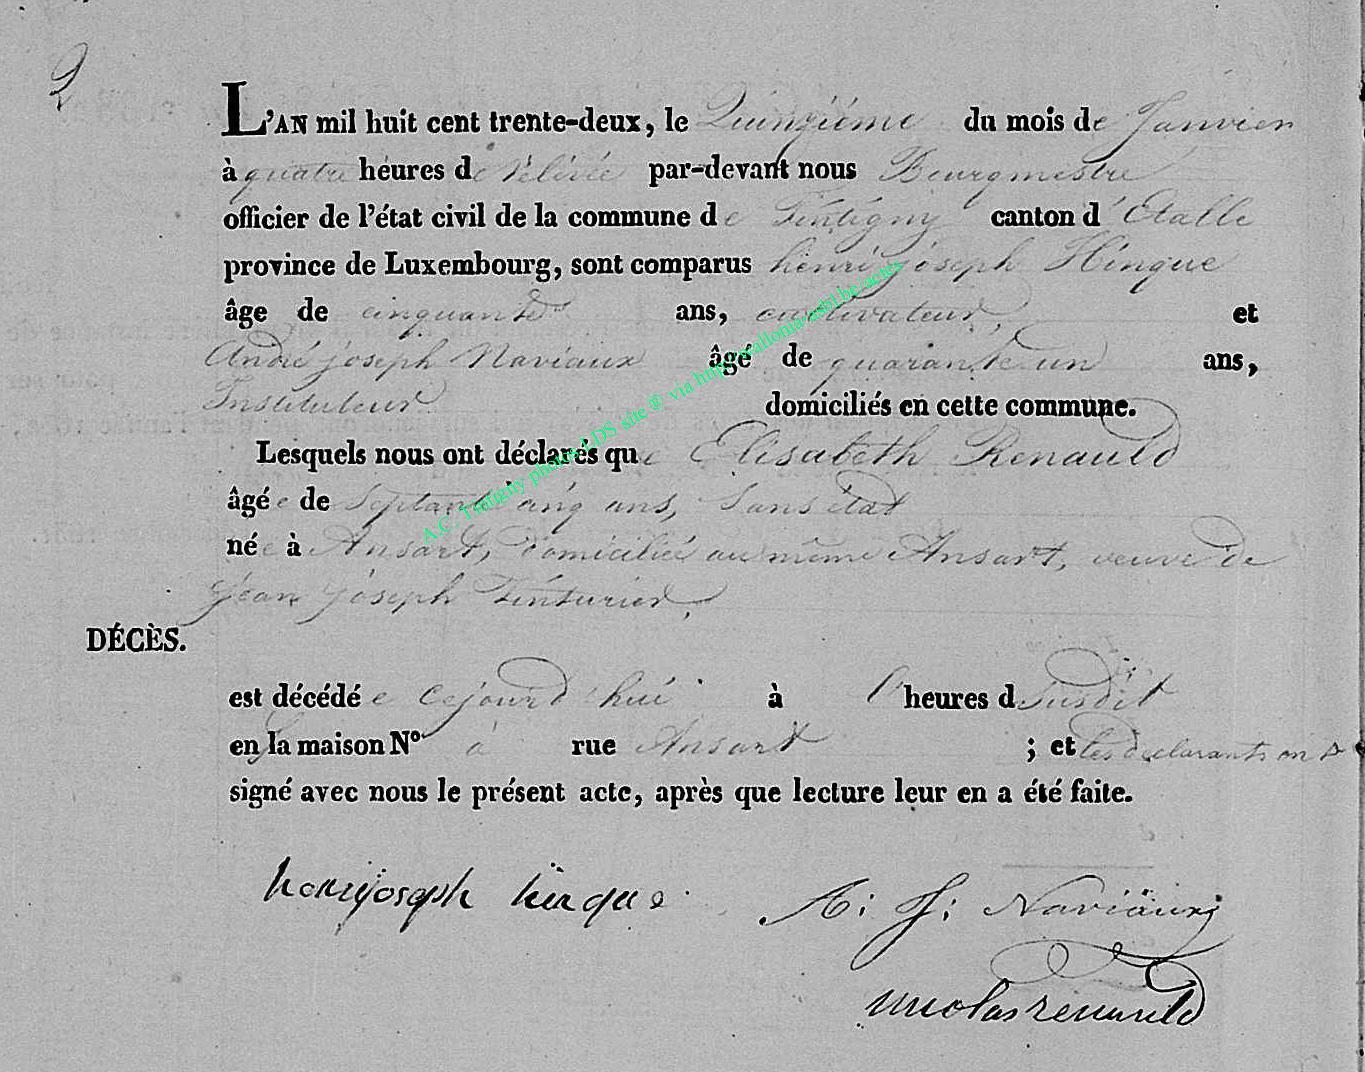 2
L'AN mil huit cent trente-deux, le Quinziéme du mois de Janvier
à quatre heures de rélévée par-devant nous Bourgmestre
officier de l'état civil de la commune de Tintigny canton d'Etalle
province de Luxembourg, sont comparus henri joseph Hinque
âge de cinquante ans, cultivateur, et
André joseph Naviaux âgé de quarante un ans,
Instituteur domiciliés en cette commune.
Lesquels nous ont déclarés que Elisabeth Renauld
âgée de Septante cinq ans, Sans état
née à Ansart, domiciliée au même Ansart, veuve de
jean joseph Tinturier,
DÉCÈS.
est décédée cejourd'hui à l' heures d Susdit
en la maison N° à rue Ansart ; et les déclarants ont
signé avec nous le présent acte, après que lecture leur en a été faite.
henrijoseph hinque A: J: Naviaux
nicolas renauld
A.C. Tintigny photos LDS site © via http://wallonia-asbl.be/actes